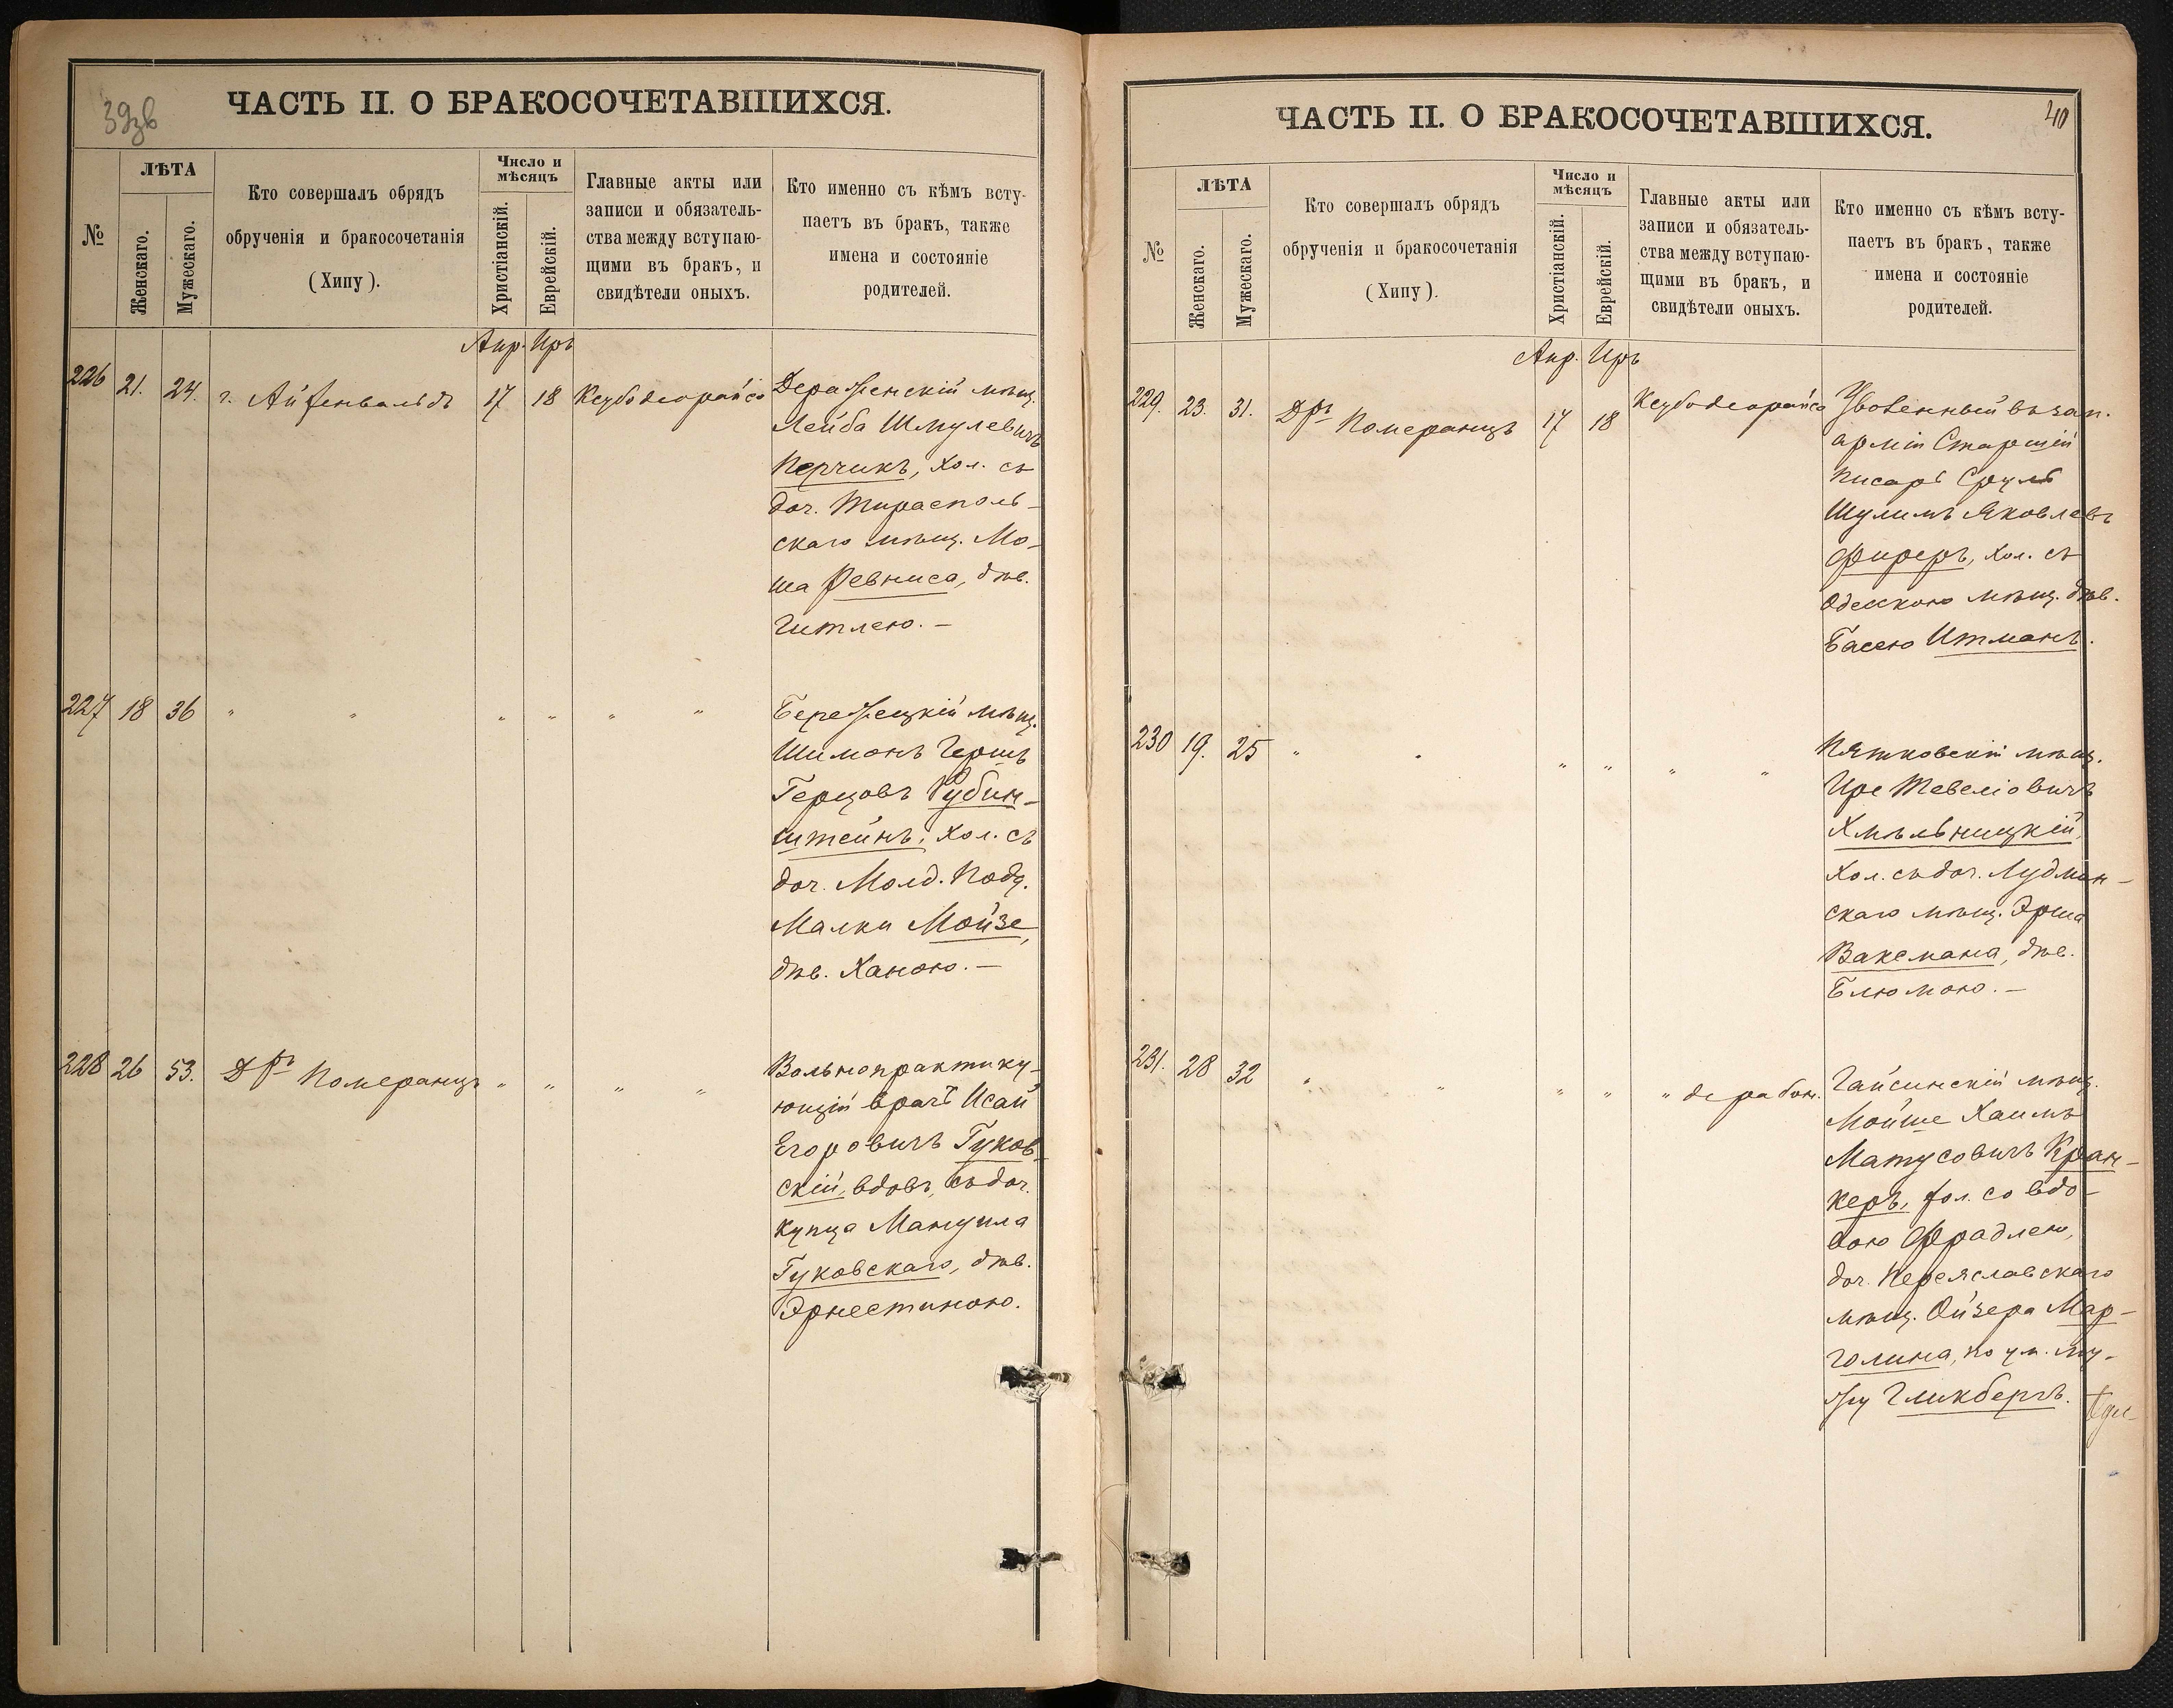 39зв
ЧАСТЬ II. О БРАКОСОЧЕТАВШИХСЯ.
№
ЛѢТА
Женскаго.
Мужескаго.
Кто совершалъ обрядъ
обрученія и бракосочетанія
(Хипу).
Число и
мѣсяцъ
Христіанскій.
Еврейскій.
Главные акты или
записи и обязатель-
ства между вступаю-
щими въ бракъ, и
свидѣтели оныхъ.
Кто именно съ кѣмъ всту-
паетъ въ бракъ, также
имена и состояніе
родителей.
Апр. Иръ
226 21. 24. г. Айзенвальдъ 17 18 Ксубо деорайсо
Деражненскій мѣщ.
Лейба Шмулевичъ
Перчикъ, хол. съ
доч. Тирасполь-
скаго мѣщ. Мо-
ша Ревниса, дѣв.
Гитлею. –
227 18 36 " " " " " "
Бережецкій мѣщ.
Шимонъ Гершъ
Герцовъ Рубин-
штейнъ, хол. съ
доч. Молд. Подд.
Малки Мойзе,
дѣв. Ханою. –
228 26 53. Дръ Померанцъ " " " "
Вольнопрактику-
ющій врачъ Исай
Егоровичъ Гуков-
скій, вдовъ, съ доч.
купца Мануила
Гуковскаго, дѣв.
Эрнестиною.
40
ЧАСТЬ II. О БРАКОСОЧЕТАВШИХСЯ.
№
ЛѢТА
Женскаго.
Мужескаго.
Кто совершалъ обрядъ
обрученія и бракосочетанія
(Хипу).
Число и
мѣсяцъ
Христіанскій.
Еврейскій.
Главные акты или
записи и обязатель-
ства между вступаю-
щими въ бракъ, и
свидѣтели оныхъ.
Кто именно съ кѣмъ всту-
паетъ въ бракъ, также
имена и состояніе
родителей.
Апр. Иръ
229. 23. 31. Дръ Померанцъ 17 18 Ксубо деорайсо
Уволенный въ зап.
арміи Старшій
писарь Сруль
Шулимъ Яковлевъ
Фиреръ, хол. съ
Одесскою мѣщ. дѣв.
Басею Итманъ.
230 19. 25 " " " " " "
Пятковскій мѣщ.
Ире Тевеліовичъ
Хмѣльницкій,
хол. съ доч. Лудмин-
скаго мѣщ. Эрша
Ваксмана, дѣв.
Блюмою. –
231. 28 32 " " " " " дерабон.
Гайсинскій мѣщ.
Мойше Хаимъ
Матусовичъ Кран-
керъ, хол. со вдо-
вою Фрадлею,
доч. Переяславскаго
мѣщ. Ойзера Мар-
голина, по ум. му-
жу Гликбергъ.